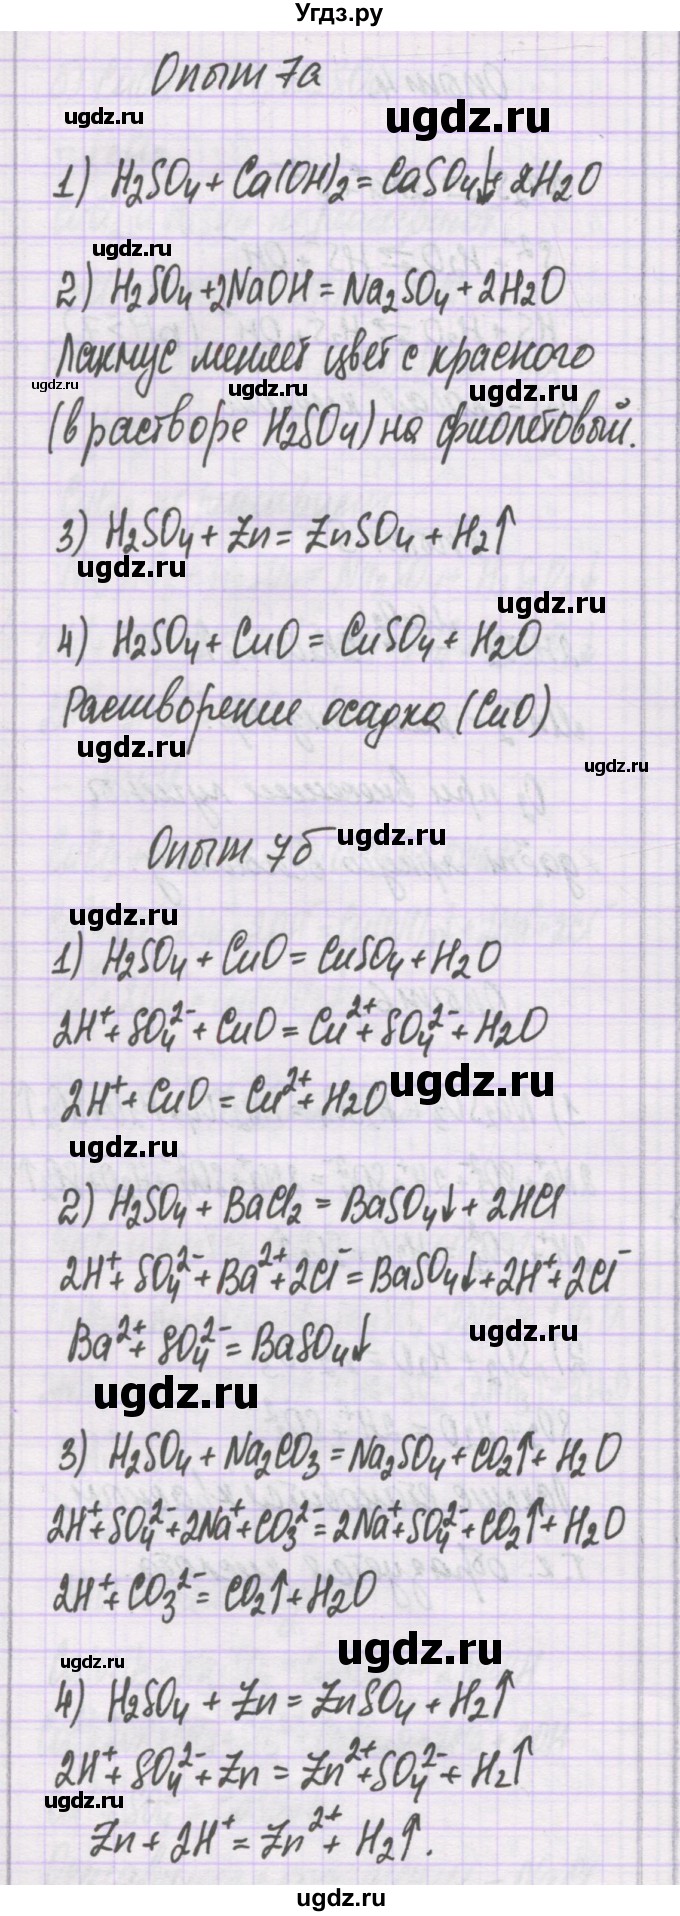 Угдз.ру
Опыт 7а
ugdz.ru ugdz.ru
1) H₂SO₄ + Ca(OH)₂ = CaSO₄↓ + 2H₂O
ugdz.ru
2) H₂SO₄ + 2NaOH = Na₂SO₄ + 2H₂O
Лакмус меняет цвет с красного
ugdz.ru ugdz.ru ugdz.ru
(в растворе H₂SO₄) на фиолетовый.
3) H₂SO₄ + Zn = ZnSO₄ + H₂↑
ugdz.ru
ugdz.ru
4) H₂SO₄ + CuO = CuSO₄ + H₂O
Растворение осадка (CuO)
ugdz.ru
ugdz.ru
Опыт 7б ugdz.ru
ugdz.ru
1) H₂SO₄ + CuO = CuSO₄ + H₂O
2H⁺ + SO₄²⁻ + CuO = Cu²⁺ + SO₄²⁻ + H₂O
ugdz.ru
2H⁺ + CuO = Cu²⁺ + H₂O
ugdz.ru
2) H₂SO₄ + BaCl₂ = BaSO₄↓ + 2HCl
2H⁺ + SO₄²⁻ + Ba²⁺ + 2Cl⁻ = BaSO₄↓ + 2H⁺ + 2Cl⁻
ugdz.ru
Ba²⁺ + SO₄²⁻ = BaSO₄↓
ugdz.ru
3) H₂SO₄ + Na₂CO₃ = Na₂SO₄ + CO₂↑ + H₂O
2H⁺ + SO₄²⁻ + 2Na⁺ + CO₃²⁻ = 2Na⁺ + SO₄²⁻ + CO₂↑ + H₂O
2H⁺ + CO₃²⁻ = CO₂↑ + H₂O
ugdz.ru
ugdz.ru
4) H₂SO₄ + Zn = ZnSO₄ + H₂↑
2H⁺ + SO₄²⁻ + Zn = Zn²⁺ + SO₄²⁻ + H₂↑
ugdz.ru
Zn + 2H⁺ = Zn²⁺ + H₂↑.
ugdz.ru